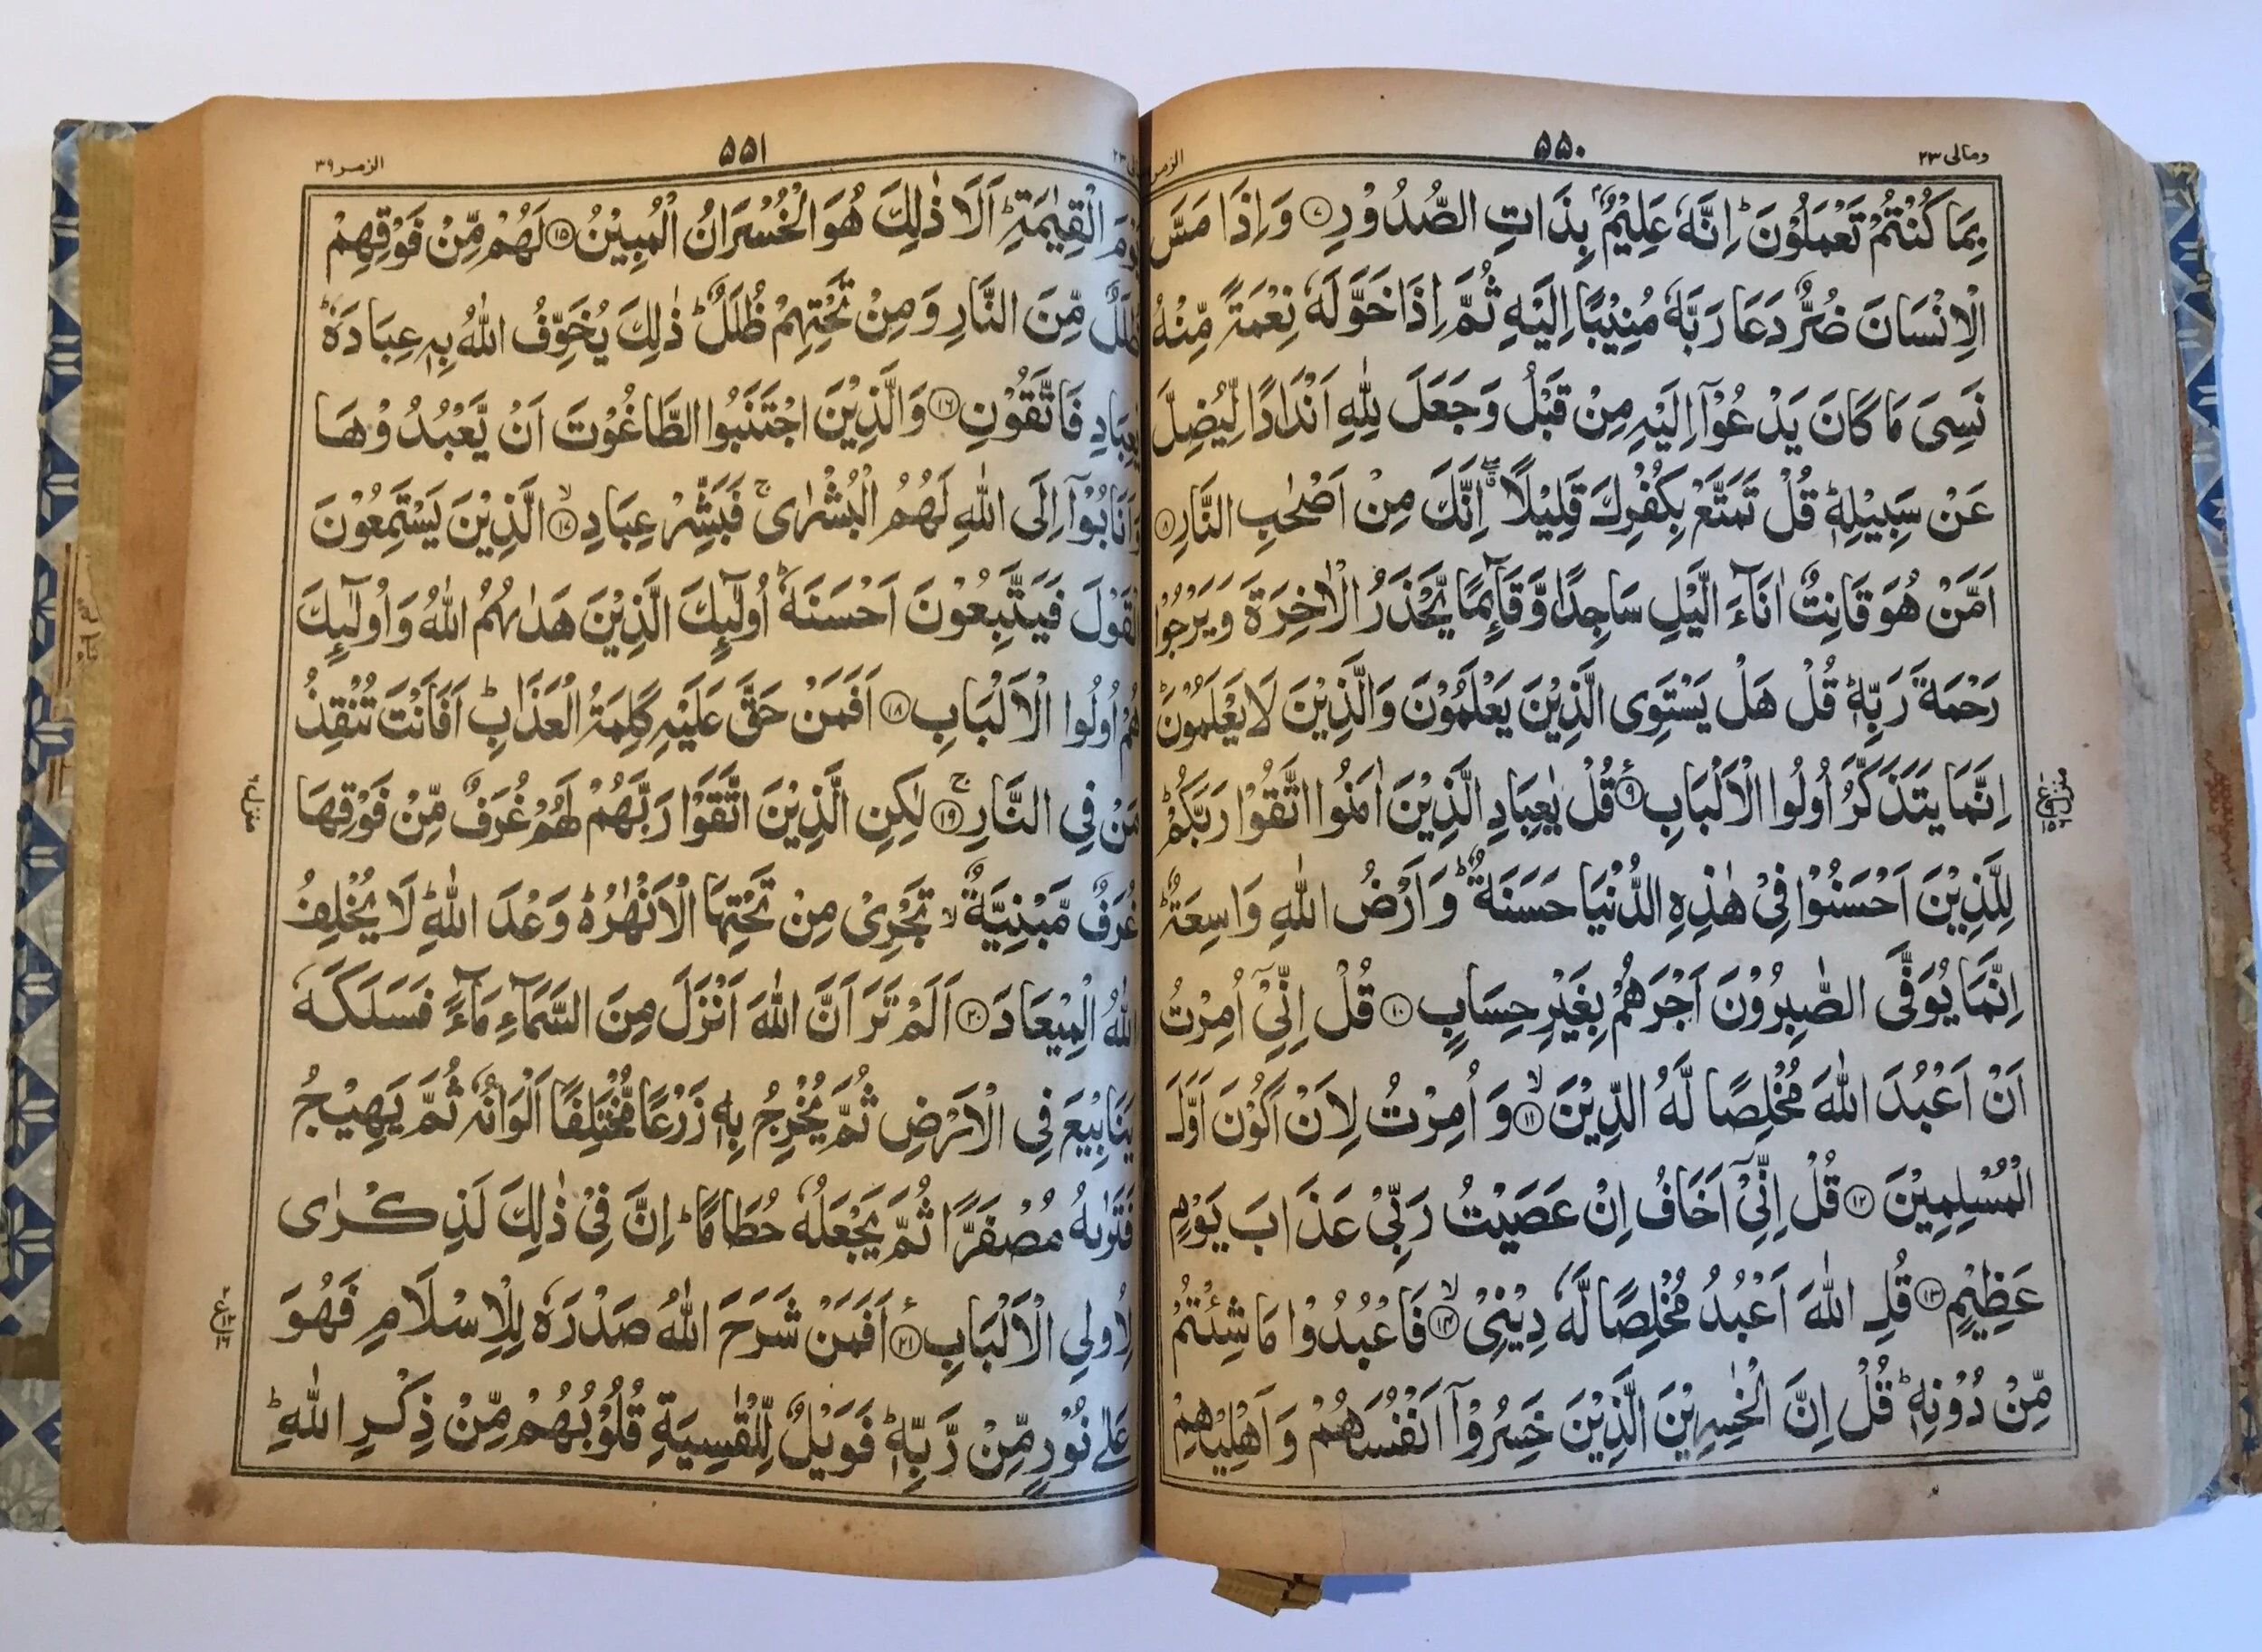 ومالی ۲۳
۵۵۰
الزمر
بِمَا كُنْتُمْ تَعْمَلُوْنَ ؕ اِنَّهٗ عَلِيْمٌۢ بِذَاتِ الصُّدُوْرِ ۷ وَاِذَا مَسَّ
الْاِنْسَانَ ضُرٌّ دَعَا رَبَّهٗ مُنِيْبًا اِلَيْهِ ثُمَّ اِذَا خَوَّلَهٗ نِعْمَةً مِّنْهُ
نَسِىَ مَا كَانَ يَدْعُوْۤا اِلَيْهِ مِنْ قَبْلُ وَجَعَلَ لِلّٰهِ اَنْدَادًا لِّيُضِلَّ
عَنْ سَبِيْلِهٖ ؕ قُلْ تَمَتَّعْ بِكُفْرِكَ قَلِيْلًا ۖ اِنَّكَ مِنْ اَصْحٰبِ النَّارِ ۸
اَمَّنْ هُوَ قَانِتٌ اٰنَآءَ الَّيْلِ سَاجِدًا وَّقَآئِمًا يَّحْذَرُ الْاٰخِرَةَ وَيَرْجُوْا
رَحْمَةَ رَبِّهٖ ؕ قُلْ هَلْ يَسْتَوِى الَّذِيْنَ يَعْلَمُوْنَ وَالَّذِيْنَ لَا يَعْلَمُوْنَ ؕ
اِنَّمَا يَتَذَكَّرُ اُولُوا الْاَلْبَابِ ۹ قُلْ يٰعِبَادِ الَّذِيْنَ اٰمَنُوا اتَّقُوْا رَبَّكُمْ ؕ
لِلَّذِيْنَ اَحْسَنُوْا فِىْ هٰذِهِ الدُّنْيَا حَسَنَةٌ ؕ وَاَرْضُ اللّٰهِ وَاسِعَةٌ ؕ
اِنَّمَا يُوَفَّى الصّٰبِرُوْنَ اَجْرَهُمْ بِغَيْرِ حِسَابٍ ۱۰ قُلْ اِنِّىْۤ اُمِرْتُ
اَنْ اَعْبُدَ اللّٰهَ مُخْلِصًا لَّهُ الدِّيْنَ ۙ ۱۱ وَاُمِرْتُ لِاَنْ اَكُوْنَ اَوَّلَ
الْمُسْلِمِيْنَ ۱۲ قُلْ اِنِّىْۤ اَخَافُ اِنْ عَصَيْتُ رَبِّىْ عَذَابَ يَوْمٍ
عَظِيْمٍ ۱۳ قُلِ اللّٰهَ اَعْبُدُ مُخْلِصًا لَّهٗ دِيْنِىْ ۙ ۱۴ فَاعْبُدُوْا مَا شِئْتُمْ
مِّنْ دُوْنِهٖ ؕ قُلْ اِنَّ الْخٰسِرِيْنَ الَّذِيْنَ خَسِرُوْۤا اَنْفُسَهُمْ وَاَهْلِيْهِمْ
۵۵۱
الزمر ۳۹
يَوْمَ الْقِيٰمَةِ ؕ اَلَا ذٰلِكَ هُوَ الْخُسْرَانُ الْمُبِيْنُ ۱۵ لَهُمْ مِّنْ فَوْقِهِمْ
ظُلَلٌ مِّنَ النَّارِ وَمِنْ تَحْتِهِمْ ظُلَلٌ ؕ ذٰلِكَ يُخَوِّفُ اللّٰهُ بِهٖ عِبَادَهٗ ؕ
يٰعِبَادِ فَاتَّقُوْنِ ۱۶ وَالَّذِيْنَ اجْتَنَبُوا الطَّاغُوْتَ اَنْ يَّعْبُدُوْهَا
وَاَنَابُوْۤا اِلَى اللّٰهِ لَهُمُ الْبُشْرٰى ۚ فَبَشِّرْ عِبَادِ ۙ ۱۷ الَّذِيْنَ يَسْتَمِعُوْنَ
الْقَوْلَ فَيَتَّبِعُوْنَ اَحْسَنَهٗ ؕ اُولٰٓئِكَ الَّذِيْنَ هَدٰىهُمُ اللّٰهُ وَاُولٰٓئِكَ
هُمْ اُولُوا الْاَلْبَابِ ۱۸ اَفَمَنْ حَقَّ عَلَيْهِ كَلِمَةُ الْعَذَابِ ؕ اَفَاَنْتَ تُنْقِذُ
مَنْ فِى النَّارِ ۚ ۱۹ لٰكِنِ الَّذِيْنَ اتَّقَوْا رَبَّهُمْ لَهُمْ غُرَفٌ مِّنْ فَوْقِهَا
منزل ۶
غُرَفٌ مَّبْنِيَّةٌ ۙ تَجْرِىْ مِنْ تَحْتِهَا الْاَنْهٰرُ ؕ وَعْدَ اللّٰهِ ؕ لَا يُخْلِفُ
اللّٰهُ الْمِيْعَادَ ۲۰ اَلَمْ تَرَ اَنَّ اللّٰهَ اَنْزَلَ مِنَ السَّمَآءِ مَآءً فَسَلَكَهٗ
يَنَابِيْعَ فِى الْاَرْضِ ثُمَّ يُخْرِجُ بِهٖ زَرْعًا مُّخْتَلِفًا اَلْوَانُهٗ ثُمَّ يَهِيْجُ
فَتَرٰىهُ مُصْفَرًّا ثُمَّ يَجْعَلُهٗ حُطَامًا ؕ اِنَّ فِىْ ذٰلِكَ لَذِكْرٰى
لِاُولِى الْاَلْبَابِ ۲۱ اَفَمَنْ شَرَحَ اللّٰهُ صَدْرَهٗ لِلْاِسْلَامِ فَهُوَ
عَلٰى نُوْرٍ مِّنْ رَّبِّهٖ ؕ فَوَيْلٌ لِّلْقٰسِيَةِ قُلُوْبُهُمْ مِّنْ ذِكْرِ اللّٰهِ ؕ